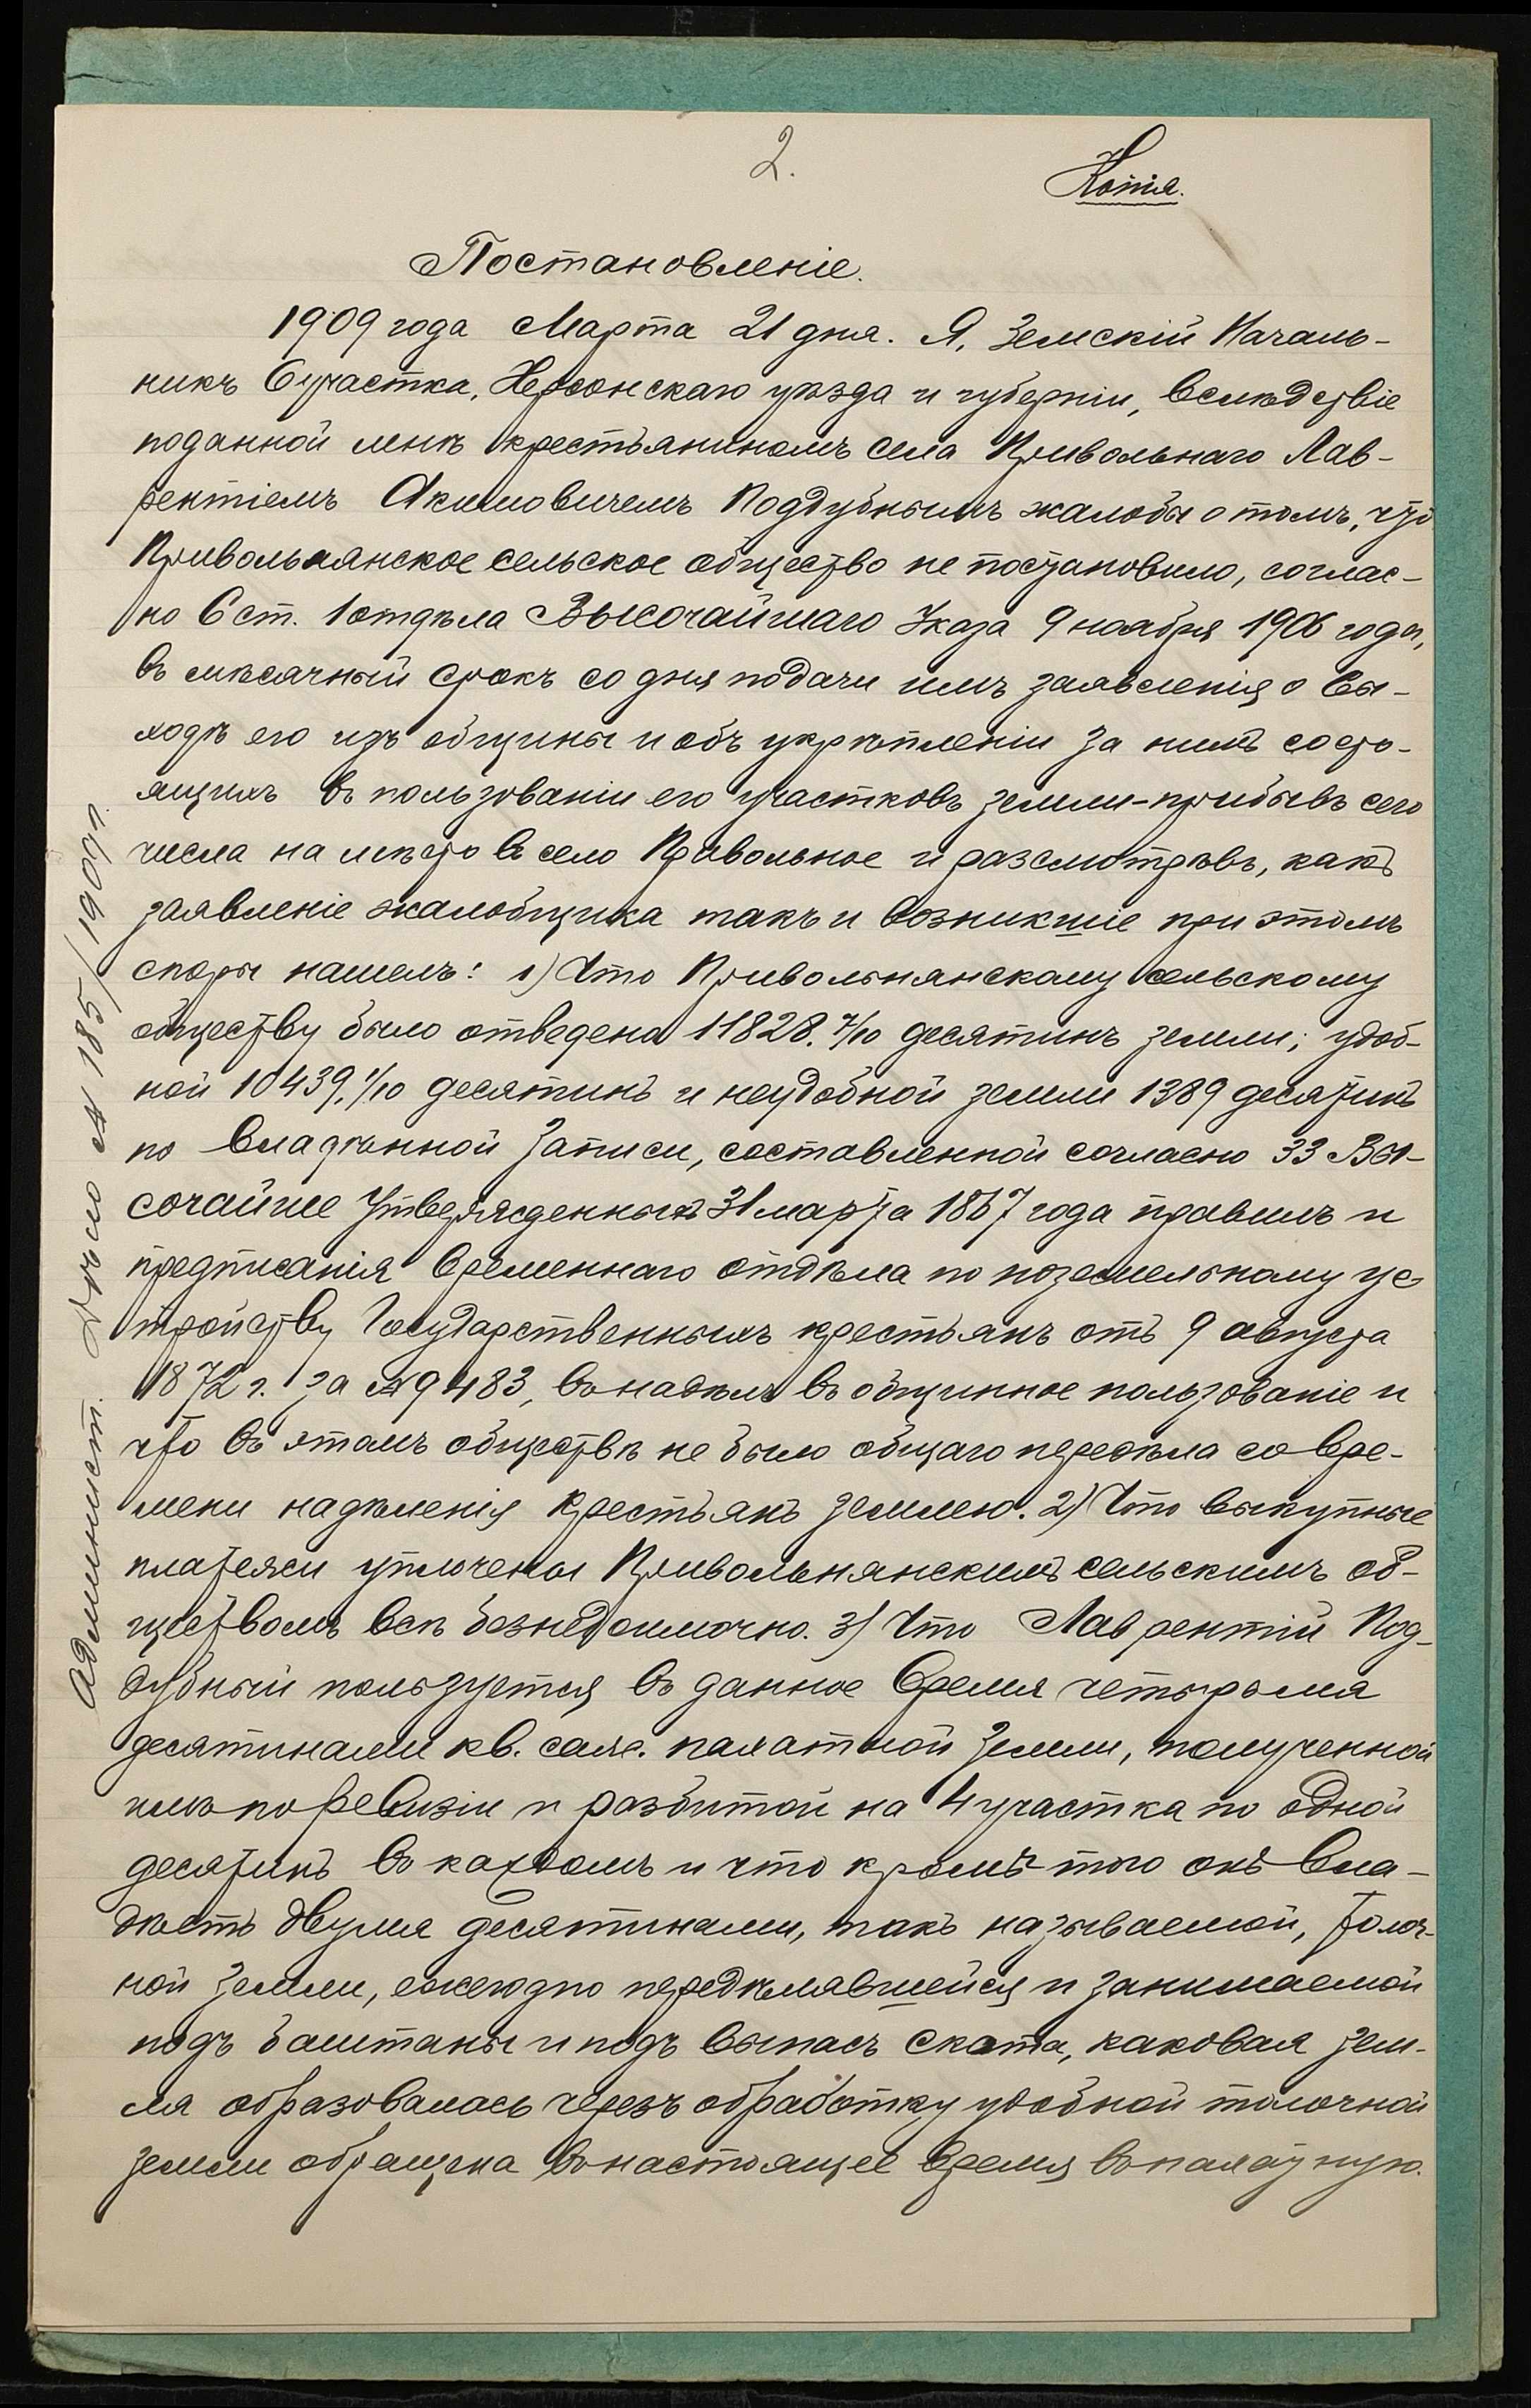 2.
Копія.
Постановленіе.
1909 года Марта 21 дня. Я, Земскій Началь-
никъ 6 участка, Херсонскаго уѣзда и губерніи, вслѣдствіе
поданной мнѣ крестьяниномъ села Привольнаго Лав-
рентіемъ Акимовичемъ Поддубнымъ жалобы о томъ, что
Привольнянское сельское общество не постановило, соглас-
но 6 ст. 1 отдѣла Высочайшаго Указа 9 ноября 1906 года,
въ мѣсячный срокъ со дня подачи имъ заявленія о вы-
ходѣ его изъ общины и объ укрѣпленіи за нимъ состо-
ящихъ въ пользованіи его участковъ земли-прибывъ сего
числа на мѣсто въ село Привольное и разсмотрѣвъ, какъ
заявленіе жалобщика такъ и возникшіе при этомъ
споры нашелъ: 1) Что Привольнянскому сельскому
обществу было отведена 11828.4/10 десятинъ земли; удоб-
ной 10439,1/10 десятинъ и неудобной земли 1389 десятинъ
по владѣнной записи, составленной согласно 33 Вы-
сочайше Утвержденныхъ 31 марта 1867 года правилъ и
предписанія временнаго отдѣла по поземельному ус
тройству Государственныхъ крестьянъ отъ 9 августа
1872 г. за № 9483, въ надѣлъ въ общинное пользованіе и
что въ этомъ обществѣ не было общаго передѣла со вре-
мени надѣленія крестьянъ землею. 2) Что выкупные
платежи уплочены Привольнянскимъ сельскимъ об-
ществомъ всѣ безнедоимочно. 3) Что Лаврентій Под-
дубный пользуется въ данное время четырьмя
десятинами кв. саж. пахатной земли, полученной
имъ по ревизіи и разбитой на 4 участка по одной
десятинѣ въ каждомъ и что кромѣ того онъ вла-
дѣетъ двумя десятинами, такъ называемой, толоч-
ной земли, ежегодно передѣлявшейся и занимаемой
подъ баштаны и подъ выпасъ скота, каковая зем-
ля образовалась черезъ обработку удобной толочной
земли обращена въ настоящее время въ пахатную.
Административ. Дѣло № 185/1909 г.